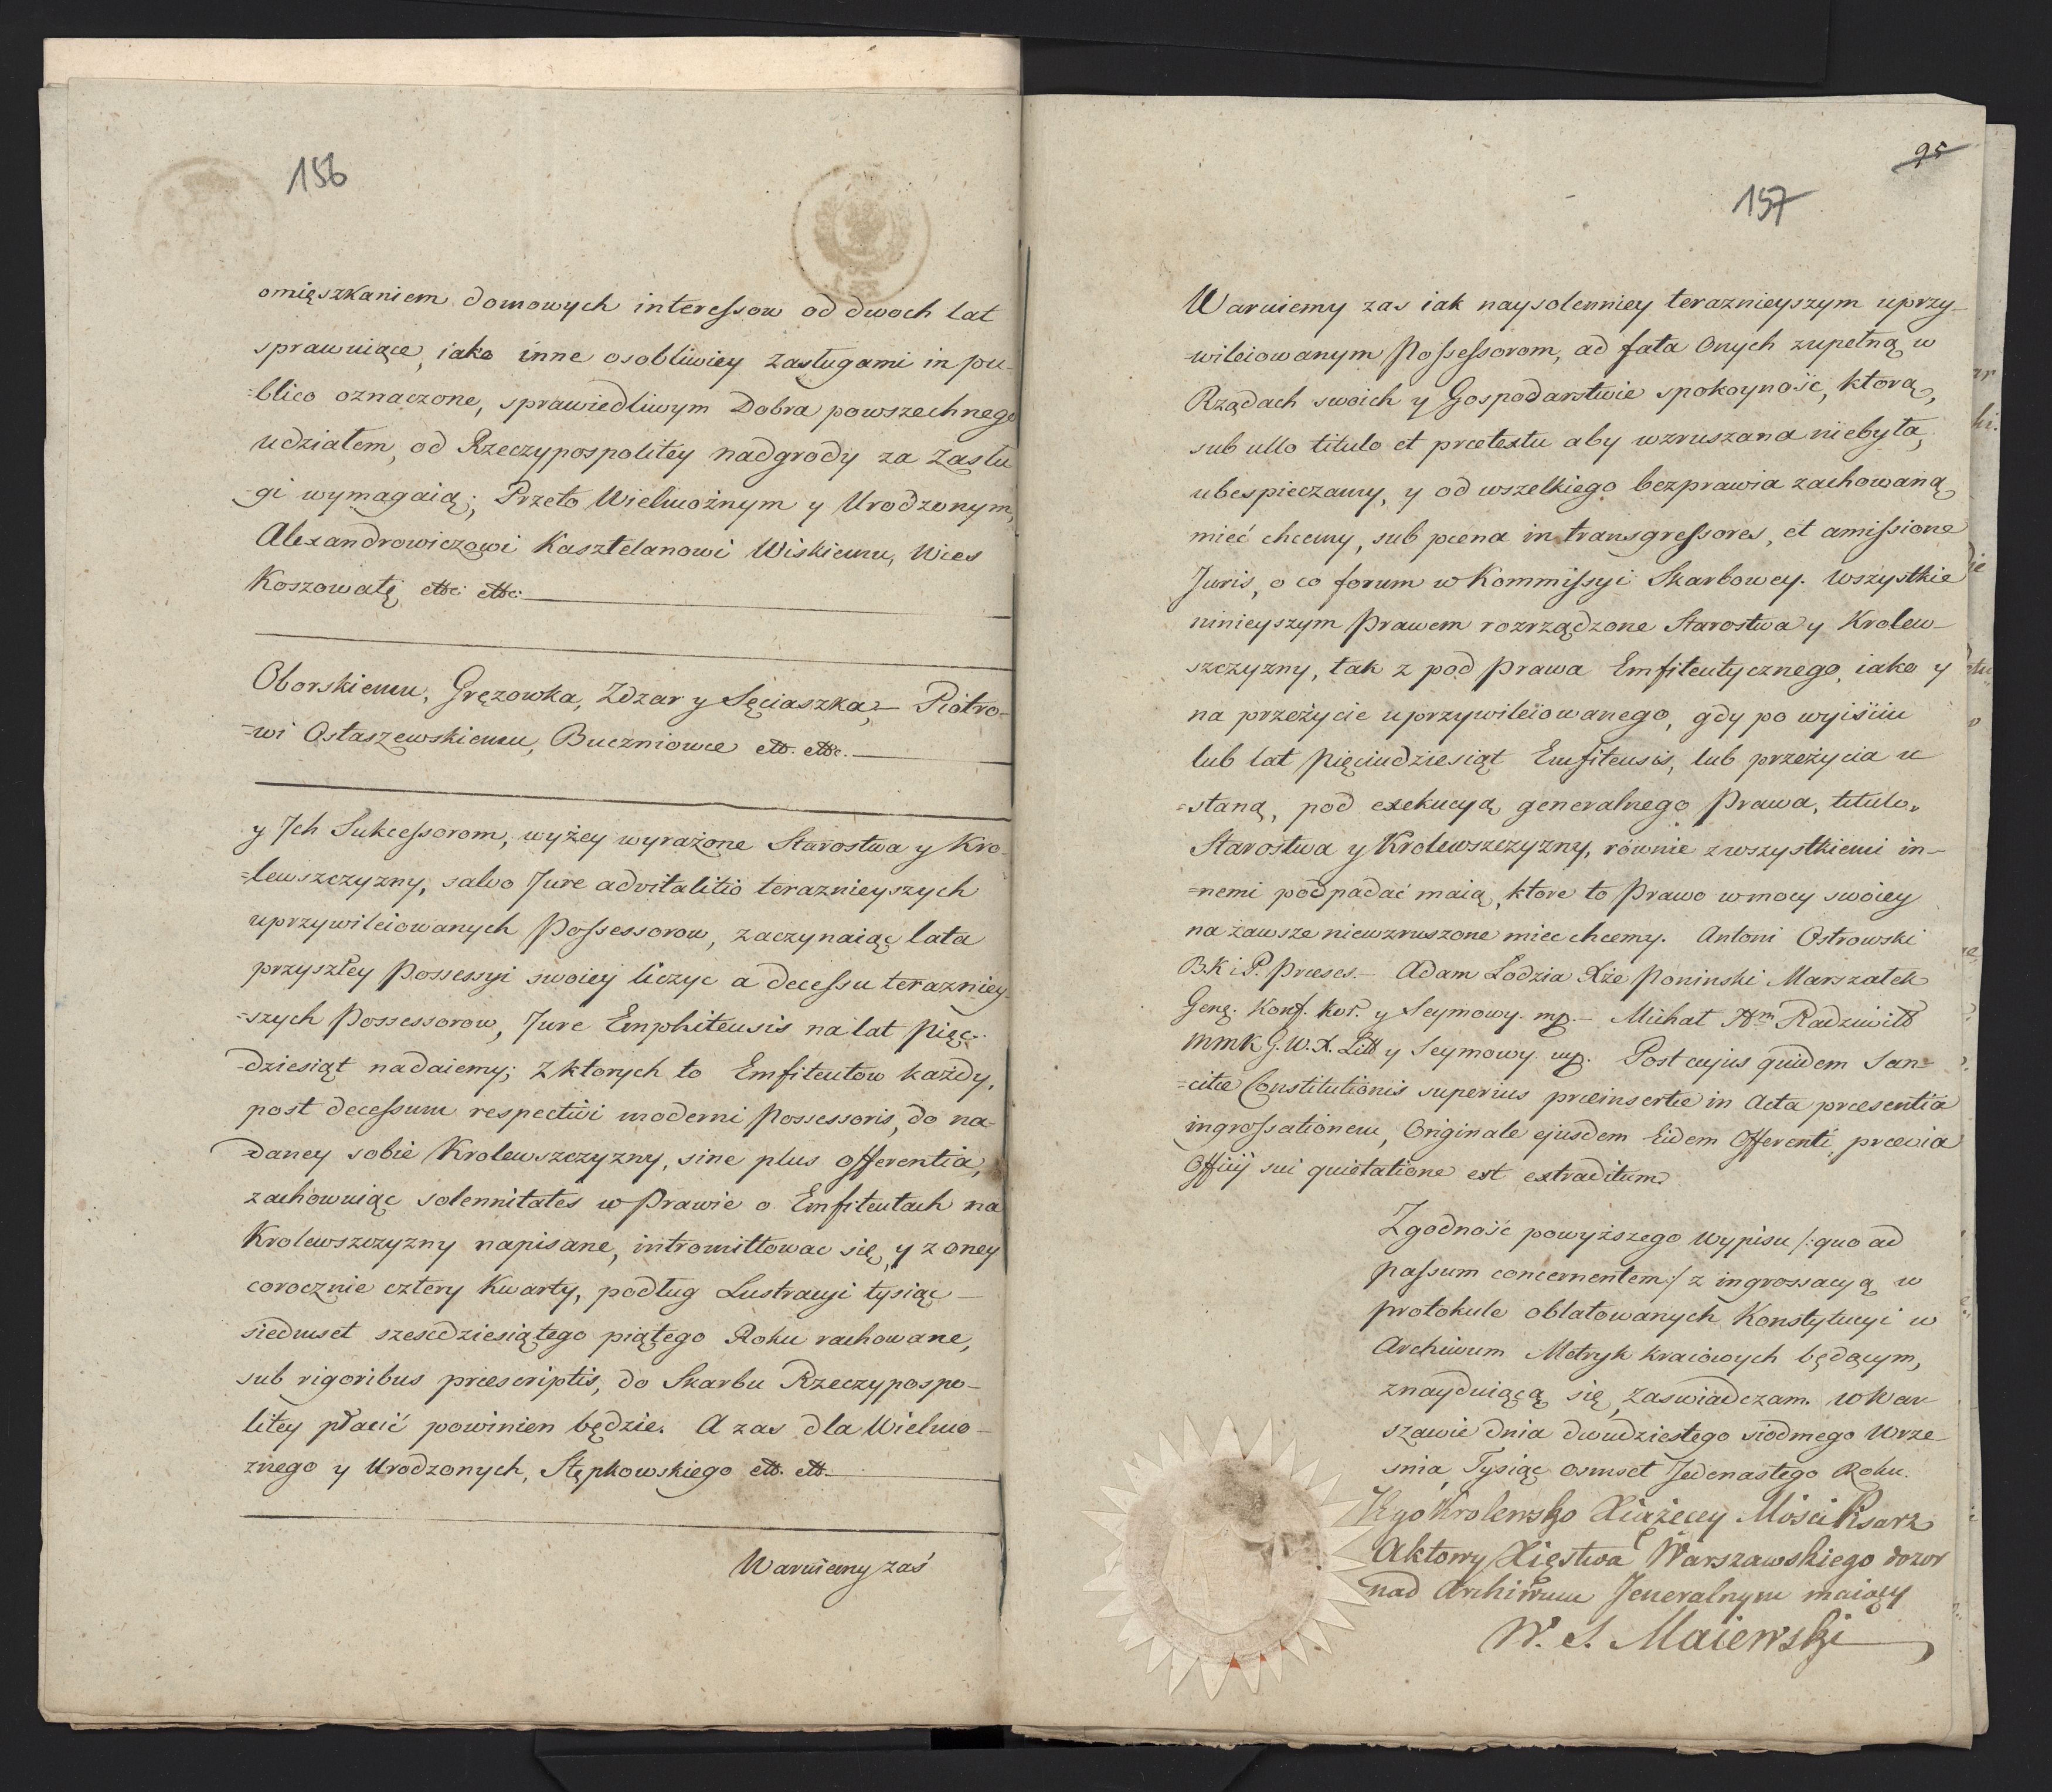 156
omięszkaniem domowych interessow od dwoch lat
sprawuiące, iako inne osobliwiey zasługami in pu-
=blico oznaczone, sprawiedliwym Dobra powszechnego
udziałem, od Rzeczypospolitey nadgrody za Zasłu
-gi wymagaią; Przeto Wielmożnym y Urodzonym,
Alexandrowiczowi Kasztelanowi Wiskiemu, Wies
Koszowatę, etc: etc:
Oborskiemu, Gręzowka, Zdzar y Sęciaszka, – Piotro-
=wi Ostaszewskiemu, Buczniowce etc. etc.
y Jch Sukcessorom, wyżey wyrażone Starostwa y Kro-
=lewszczyzny, salvo Jure advitalitio teraznieyszych
uprzywileiowanych Possessorow, zaczynaiąc lata
przyszłey Possessyi swoiey liczyc a decessu teraźniey-
=szych Possessorow, Jure Emphiteusis na lat Pięc-
-dziesiąt nadaiemy; Z ktorych to Emfiteutow każdy,
post decessum respectivi moderni Possessoris, do na-
daney sobie Krolewszczyzny, sine plus offerentia,
zachowuiąc solennitates w Prawie o Emfiteutach na
Krolewszczyzny napisane, intromittowac się, y z oney
corocznie cztery Kwarty, podług Lustracyi tysiąc –
siedmset szescdziesiątego piątego Roku rachowane,
sub rigoribus præscriptis, do Skarbu Rzeczypospo-
litey płacić powinien będzie. A zas dla Wielmo-
znego y Urodzonych, Stępkowskiego etc. etc.
Waruiemy zaś
95
157
Waruiemy zas iak naysolenniey teraznieyszym uprzy-
=wileiowanym Possessorom, ad fata Onych zupełną w
Rządach swoich y Gospodarstwie spokoyność, ktorą,
sub ullo titulo et prætextu aby wzruszana niebyła,
ubespieczamy, y od wszelkiego bezprawia zachowaną
mieć chcemy, sub pœna in transgressores, et amissione
Juris, o co forum w Kommissyi Skarbowey. Wszystkie
ninieyszym Prawem rozrządzone Starostwa y Krolew-
szczyzny, tak z pod Prawa Emfiteutycznego, iako y
na przeżycie uprzywileiowanego, gdy po wyiściu
lub lat Pięciudziesiąt Emfiteusis, lub przeżycia u
=staną, pod exekucyą generalnego Prawa, titulo
Starostwa y Krolewszczyzny, rownie z wszystkiemi in-
=nemi podpadać maią, ktore to Prawo w mocy swoiey
na zawsze niewzruszone miec chcemy. Antoni Ostrowski
B. K i P. Præses. – Adam Lodzia Xże Poninski Marszałek
Gene. Konf. Kor. y Seymowy. mp. – Michał Radziwiłł
MMK G. W. X. Litt y Seymowy. mp. Post cujus quidem San-
=citæ Constitutionis superius præinsertæ in Acta præsentia
ingrossationem, Originale ejusdem Eidem Offerenti, prævia
Officij sui quietatione est extraditum.
Zgodność powyższego Wypisu /: quo ad
passum concernentem :/ z ingrossacyą w
protokule oblatowanych Konstytucyi w
Archiwum Metryk kraiowych będącym,
znayduiącą się, zaswiadczam. W War
szawie dnia dwudziestego siodmego Wrze-
snia, Tysiąc osmset Jedenastego Roku.
Jego Krolewsko Xiążęcey Mości Pisarz
Aktowy Xięstwa Warszawskiego dozor
nad Archiwum Jeneralnym maiący
W. S. Maiewski